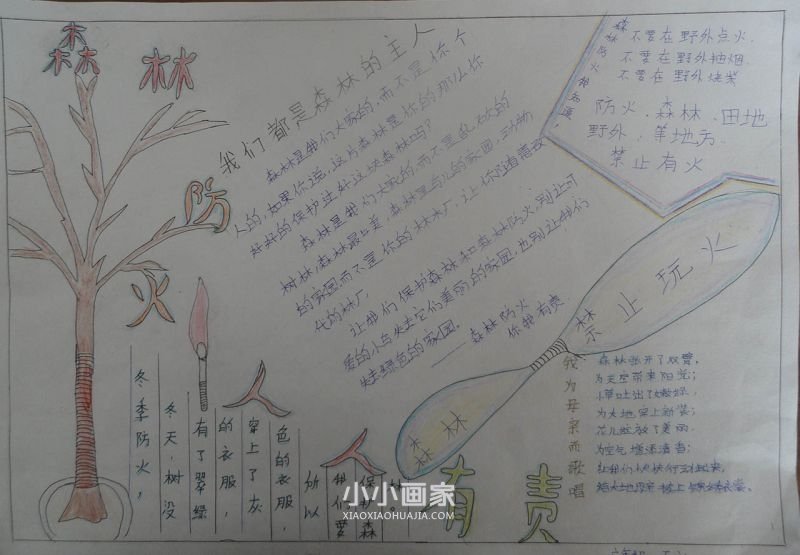 森林
防
火
人人
有责
我们都是森林的主人
森林是我们大家的,而不是你个
人的,如果你说,这片森林是你的那么你
好好的保护过好这片森林吗?
森林是我们大家的,而不是乱砍的
树林,森林是鸟儿的家园,动物
的家园,而不是你的林木厂,让你随着喜改
化的林厂。
让我们保护森林和森林防火,别让可
爱的小鸟失去它们美丽的家园,也别让我们
失去绿色的家园。
——森林防火
你我有责
森林防火我知道,
不要在野外点火.
不要在野外抽烟.
不要在野外烧柴
防火、森林、田地
野外,等地方.
禁止有火
禁止玩火
森林
我为母亲而歌唱
森林张开了双臂,
为天空带来阳光;
小草吐出了嫩绿,
为大地穿上新装;
花儿绽放了美丽.
为空气增添清香;
让我们快快行动起来,
给大地母亲披上绿衣裳.
冬季防火,
冬天,树没
有了翠绿
的衣服,
穿上了灰
色的衣服,
所以
我们要
保护森
林.
小小画家
XIAOXIAOHUAJIA.COM